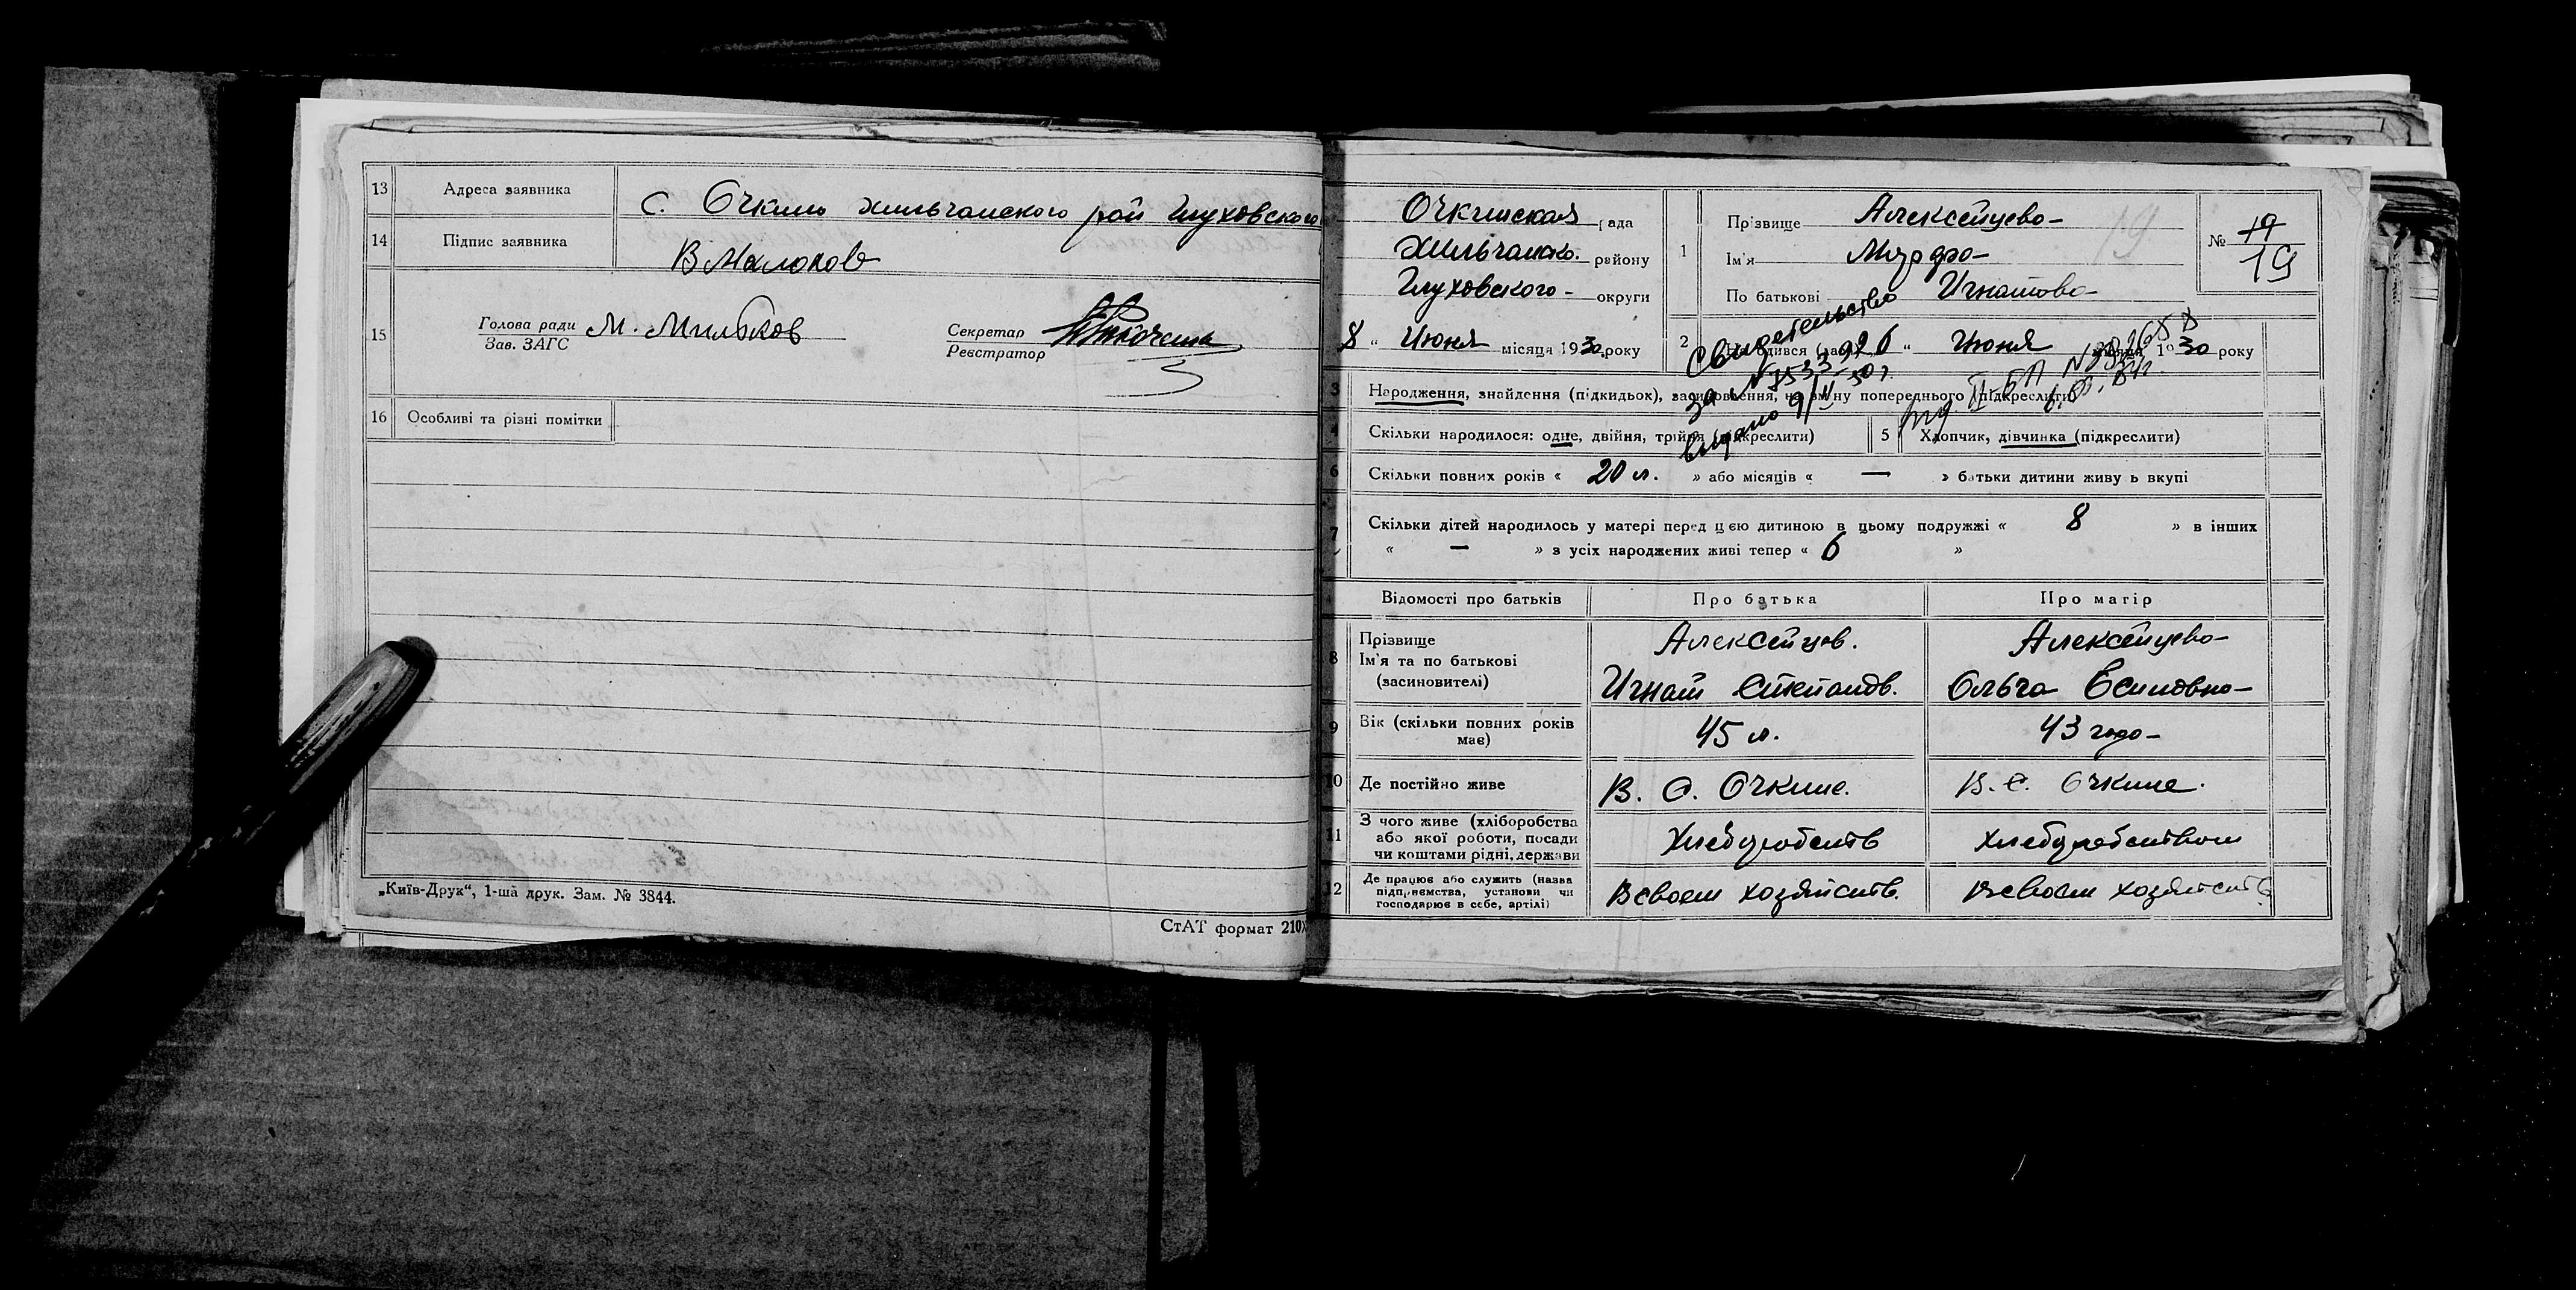 13 Адреса заявника с. Очкино Хильчанского рай Глуховского
14 Підпис заявника В Малахов
15 Голова ради М. Мильков Секретар
Зав. ЗАГС Реєстратор
16 Особливі та різні помітки
„Київ-Друк“, 1-ша друк. Зам. № 3844.
СтАТ формат 210
Очкинская рада
Хильчанско. району
Глуховского - округи
8 “ Июня місяця 1930 року
1 Прізвище Алексейцева
Ім'я
По батькові Игнатова
19
№ 19
19
2 Народився (лась) 6 “ Июня 1930 року
Свидетельство
за № 7533
выдано 9/VI 30 г.
3 Народження, знайдення (підкидьок), засиновлення, на зміну попереднього (підкреслити)
4 Скільки народилося: одне, двійня, трійня (підкреслити) 5 Хлопчик, дівчинка (підкреслити)
6 Скільки повних років « 20 л. » або місяців « — » батьки дитини живуть вкупі
7 Скільки дітей народилось у матері перед цією дитиною в цьому подружжі « 8 » в інших
« — » з усіх народжених живі тепер « 6 »
Відомості про батьків Про батька Про матір
8 Прізвище Алексейцов. Алексейцева
Ім'я та по батькові (засиновителі) Игнат Степанов. Ольга Есиповна
9 Вік (скільки повних років має) 45 л. 43 года
10 Де постійно живе В. С. Очкине. В. С. Очкине.
11 З чого живе (хліборобства або якої роботи, посади чи коштами рідні, держави Хлебуробств Хлебуробством
12 Де працює або служить (назва підприємства, установи чи господарює в себе, артілі) В своем хозяйств. В своем хозяйств